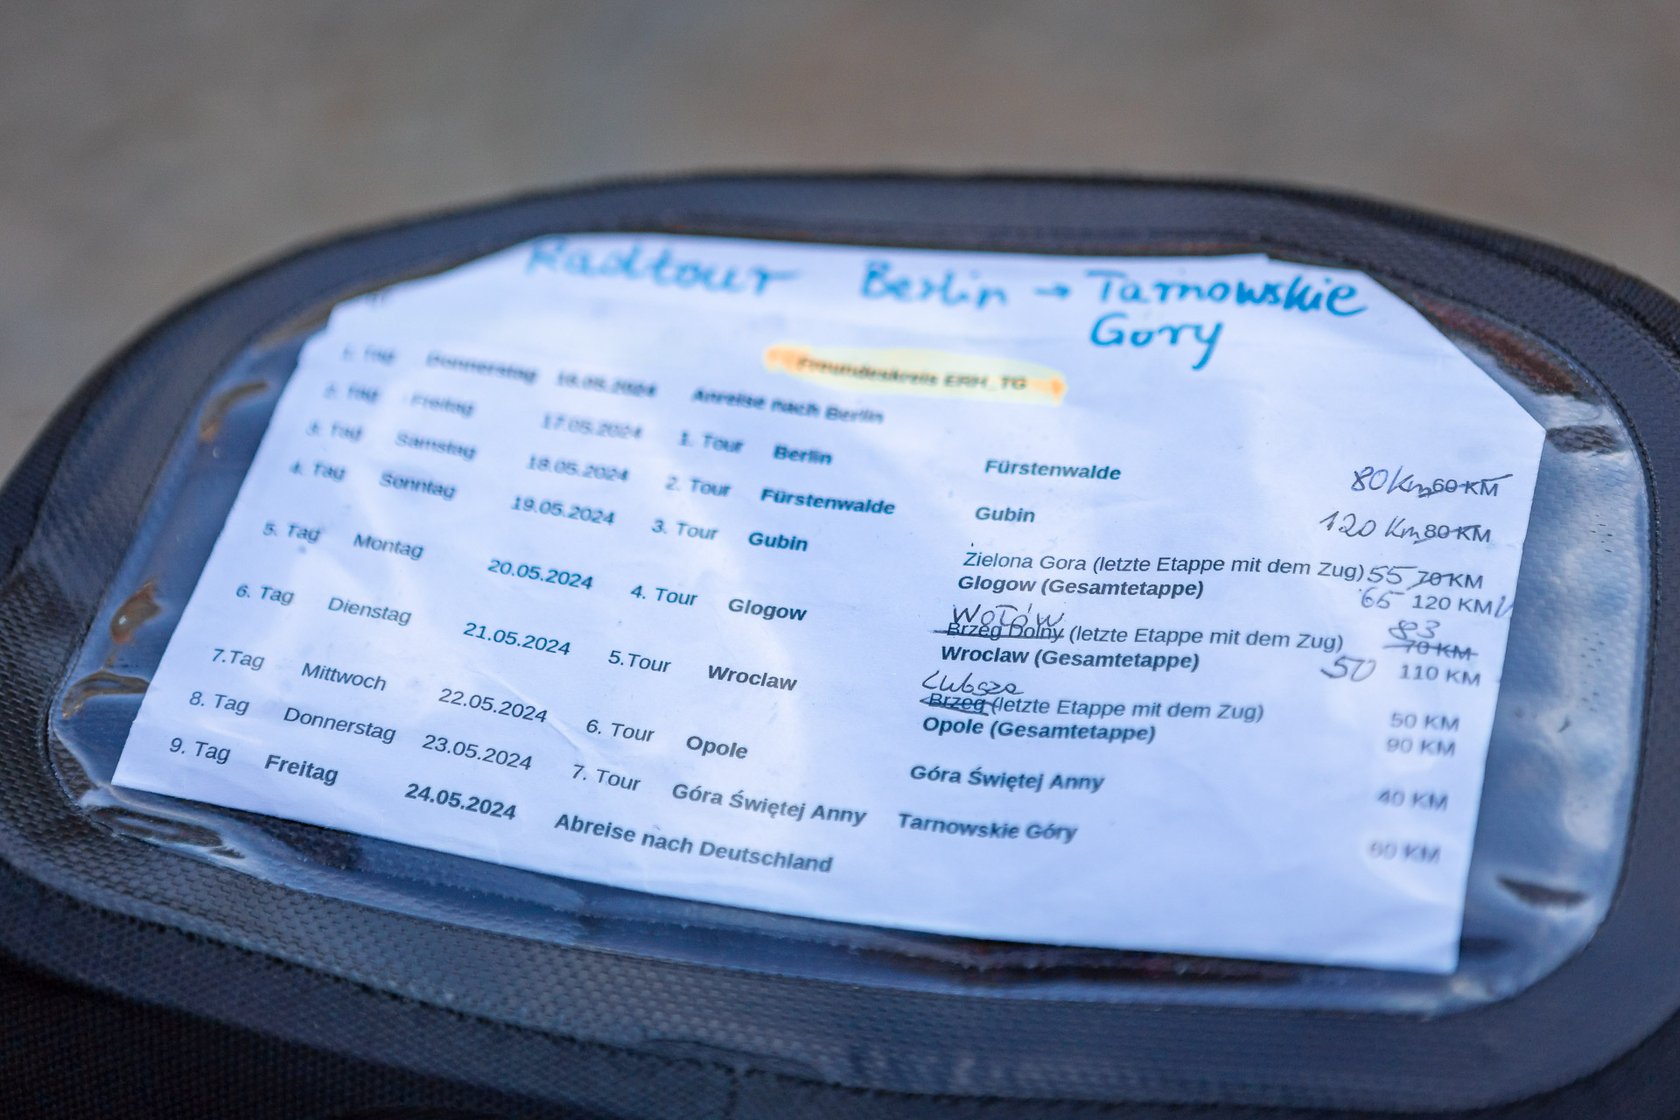 Radtour Berlin → Tarnowskie
Góry
Freundeskreis ERH_TG
1. Tag Donnerstag 16.05.2024 Anreise nach Berlin
2. Tag Freitag 17.05.2024 1. Tour Berlin Fürstenwalde 80 Km 60 KM
3. Tag Samstag 18.05.2024 2. Tour Fürstenwalde Gubin 120 Km 80 KM
4. Tag Sonntag 19.05.2024 3. Tour Gubin Zielona Gora (letzte Etappe mit dem Zug) 55 70 KM
Glogow (Gesamtetappe) 65 120 KM
Wołów 83
5. Tag Montag 20.05.2024 4. Tour Glogow Brzeg Dolny (letzte Etappe mit dem Zug) 70 KM
Wroclaw (Gesamtetappe) 50 110 KM
Lubsza
6. Tag Dienstag 21.05.2024 5.Tour Wroclaw Brzeg (letzte Etappe mit dem Zug) 50 KM
Opole (Gesamtetappe) 90 KM
7.Tag Mittwoch 22.05.2024 6. Tour Opole Góra Świętej Anny 40 KM
8. Tag Donnerstag 23.05.2024 7. Tour Góra Świętej Anny Tarnowskie Góry 60 KM
9. Tag Freitag 24.05.2024 Abreise nach Deutschland